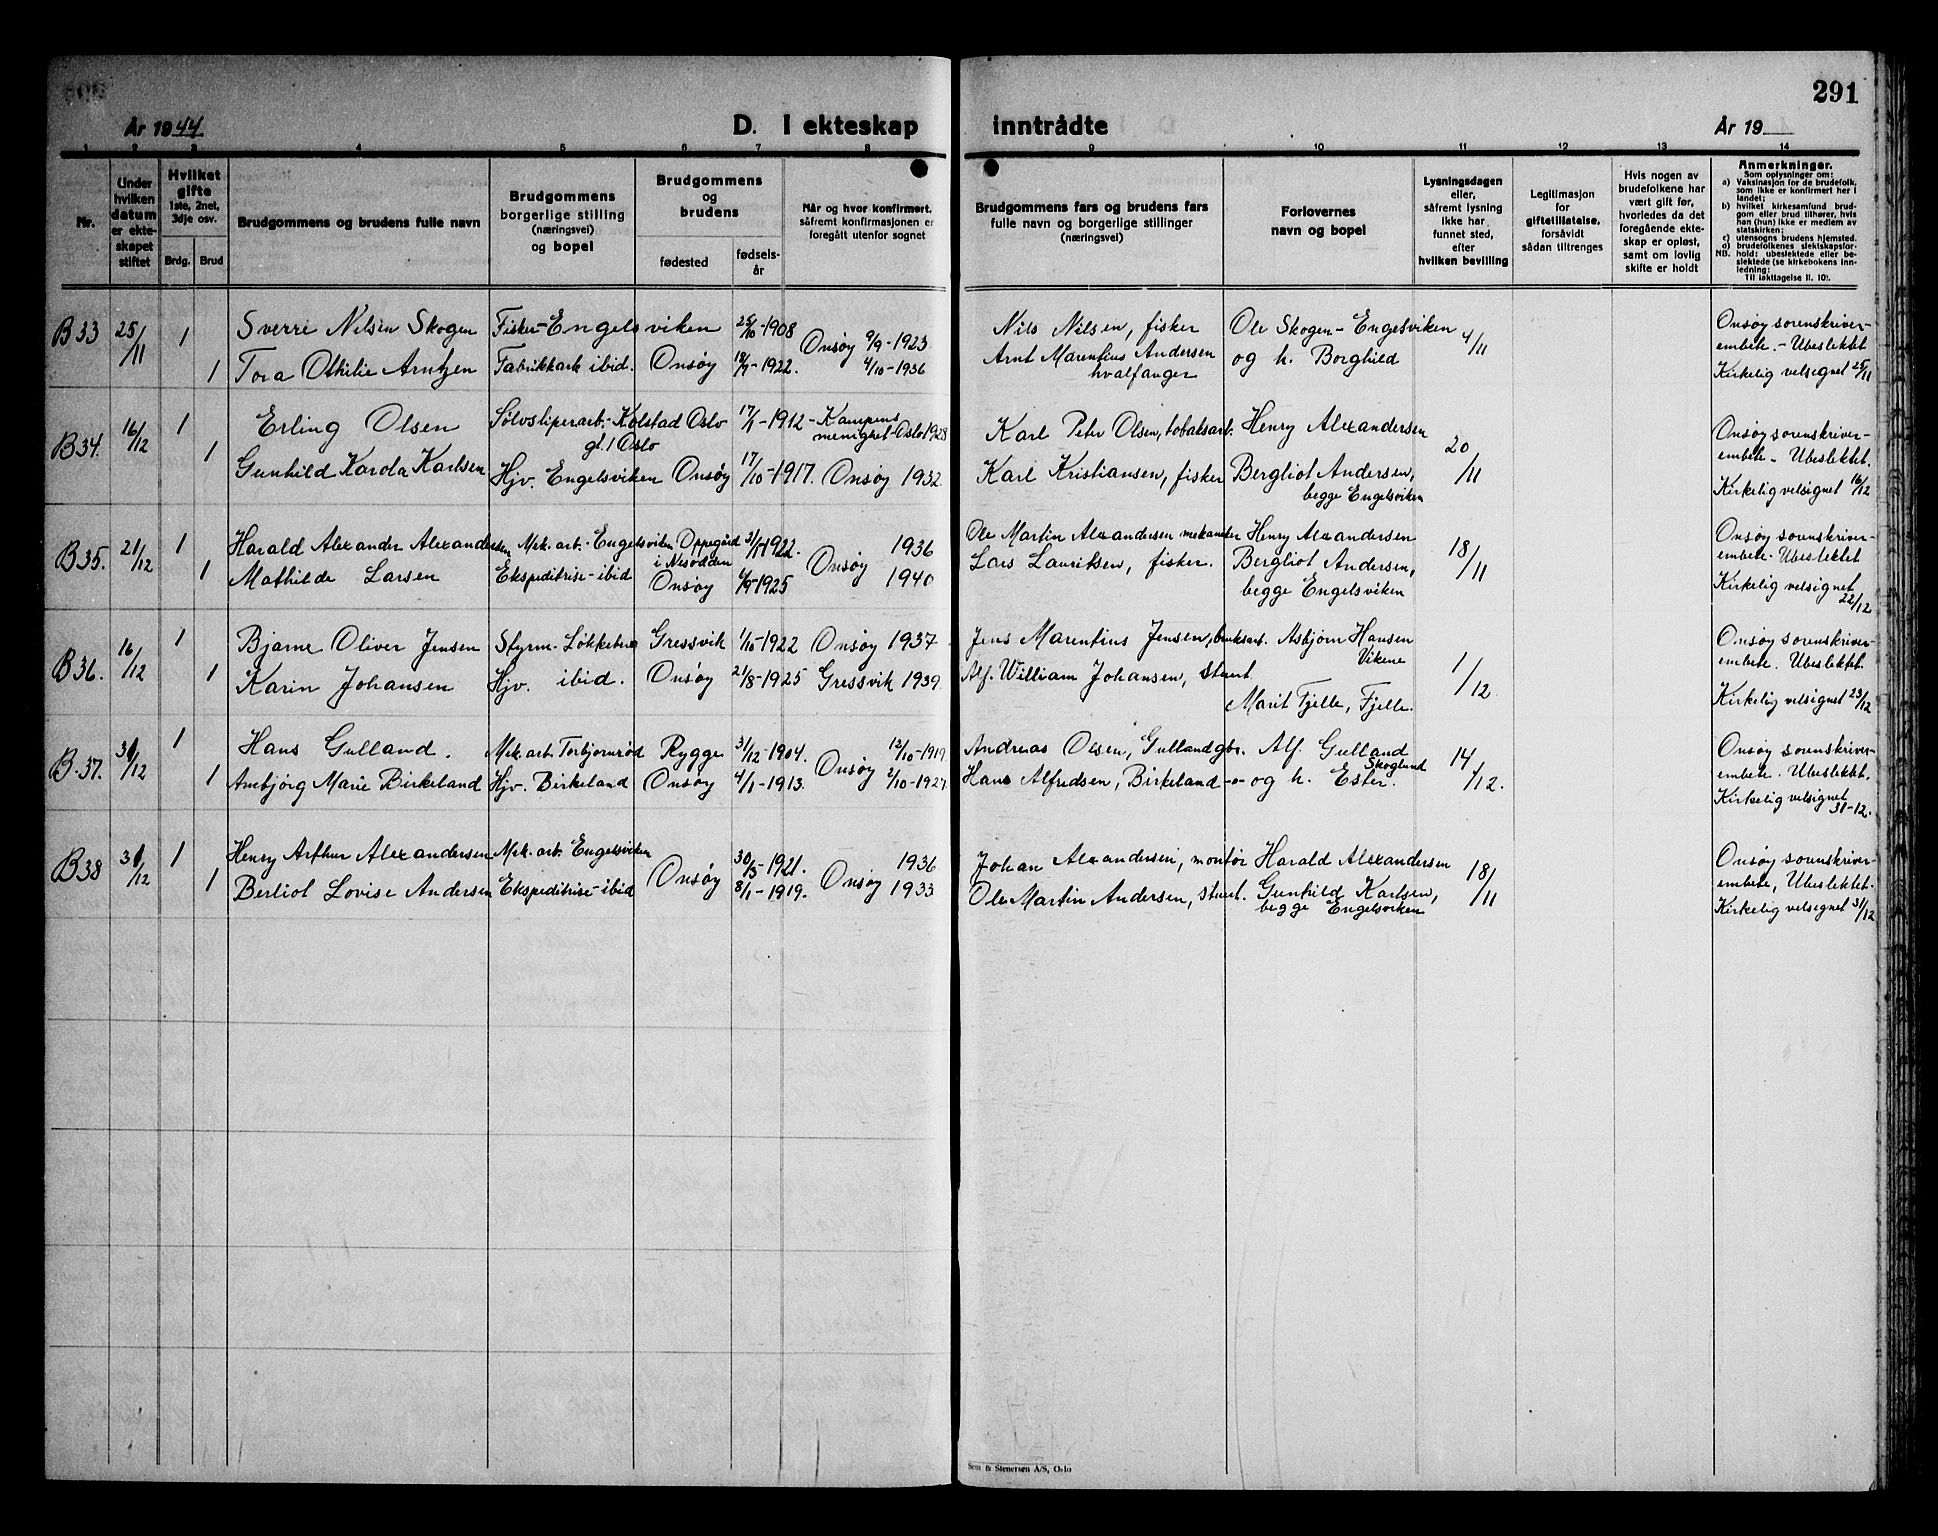 291
År 1944
D. I ekteskap
inntrådte
År 19
1 2 3 4 5 6 7 8
9 10 11 12 13 14
Nr.
Under hvilken datum er ekteskapet stiftet
Hvilket gifte 1ste, 2net, 3dje osv.
Brdg. Brud
Brudgommens og brudens fulle navn
Brudgommens borgerlige stilling (næringsvei) og bopel
Brudgommens og brudens
fødested
fødselsår
Når og hvor konfirmert, såfremt konfirmasjonen er foregått utenfor sognet
Brudgommens fars og brudens fars fulle navn og borgerlige stillinger (næringsvei)
Forlovernes navn og bopel
Lysningsdagen eller, såfremt lysning ikke har funnet sted, efter hvilken bevilling
Legitimasjon for giftetillatelse, forsåvidt sådan tiltrenges
Hvis nogen av brudefolkene har vært gift før, hvorledes da det foregående ekteskap er opløst, samt om lovlig skifte er holdt
Anmerkninger.
Som oplysninger om:
a) Vaksinasjon for de brudefolk, som ikke er konfirmert her i landet;
b) hvilket kirkesamfund brudgom eller brud tilhører, hvis han (hun) ikke er medlem av statskirken;
c) utensogns brudens hjemsted.
d) brudefolkenes slektskapsforhold: ubeslektede eller beslektede (se kirkebokens innledning;
NB. Til iakttagelse II. 10).
B33 25/11 1 Sverre Nilsen Skogen Fisker-Engelsviken 25/10-1908 Onsøy 9/9-1923 Nils Nilsen, fisker Ole Skogen-Engelsviken 4/11 Onsøy sorenskriver-
embete.-Ubeslektet
1 Tora Othilie Arntzen Fabrikkarb ibid. Onsøy -1922. 4/10-1936 Arnt Marentius Andersen og h. Borghild
hvalfanger
Kirkelig velsignet 25/11
B34. 16/12 1 Erling Olsen Sølvsliperarb.-Kolstad Oslo 17/1-1912- Kampens Karl Peter Olsen, tobaksarb. Henry Alexandersen 20/11 Onsøy sorenskriver-
gt. 1 Oslo menighet-Oslo 1928 embete-Ubeslektet.
1 Gunhild Karola Karlsen Hjv. Engelsviken Onsøy 17/10-1917. Onsøy 1932. Karl Kristiansen, fisker Bergliot Andersen, Kirkelig velsignet 16/12
begge Engelsviken
B35. 21/12 1 Harald Alexander Alexandersen Mek. arb.-Engelsviken Oppegård -1922. Onsøy 1936 Ole Martin Alexandersen Henry Alexandersen 18/11 Onsøy sorenskriver-
i Nesodden embete-Ubeslektet
1 Mathilde Larsen Ekspeditrise-ibid Onsøy -1925 1940 Lars Lauritsen, fisker. Bergliot Andersen, Kirkelig velsignet
begge Engelsviken 22/12
B36. 16/12 1 Bjarne Oliver Jensen Styrm. Gressvik 1/10-1922 Onsøy 1937 Jens Marentius Jensen, bruksarb. Asbjørn Hansen 1/12 Onsøy sorenskriver-
Vikene embete. Ubeslektet.
1 Karin Johansen Hjv. ibid. Onsøy 21/8-1925 Gressvik 1939. Alf. William Johansen, stuert
Marit Fjelle, Fjelle. Kirkelig velsignet 23/12
B.37. 31/12 1 Hans Gulland. Mek. arb. Torbjørnrød Rygge 31/12-1904. Onsøy 12/10-1919. Andreas Olsen, Gulland gbr. Alf. Gulland 14/12. Onsøy sorenskriver-
Skoglund embete. Ubeslektet.
1 Arnbjørg Marie Birkeland Hjv. Birkeland Onsøy 4/1-1913. 2/10-1927. Hans Alfredsen, Birkeland -o- og h. Ester. Kirkelig velsignet
31-12.
B38 31/12 1 Henry Arthur Alexandersen Mek. arb. Engelsviken Onsøy 30/5-1921. Onsøy 1936 Johan Alexandersen, montør Harald Alexandersen 18/11 Onsøy sorenskriver-
embete, Ubeslektet.
1 Berliot Lovise Andersen Ekspeditrise-ibid 8/1-1919. 1933 Ole Martin Andersen, stuert. Gunhild Karlsen, Kirkelig velsignet 31/12
begge Engelsviken
Sem & Stenersen A/S, Oslo